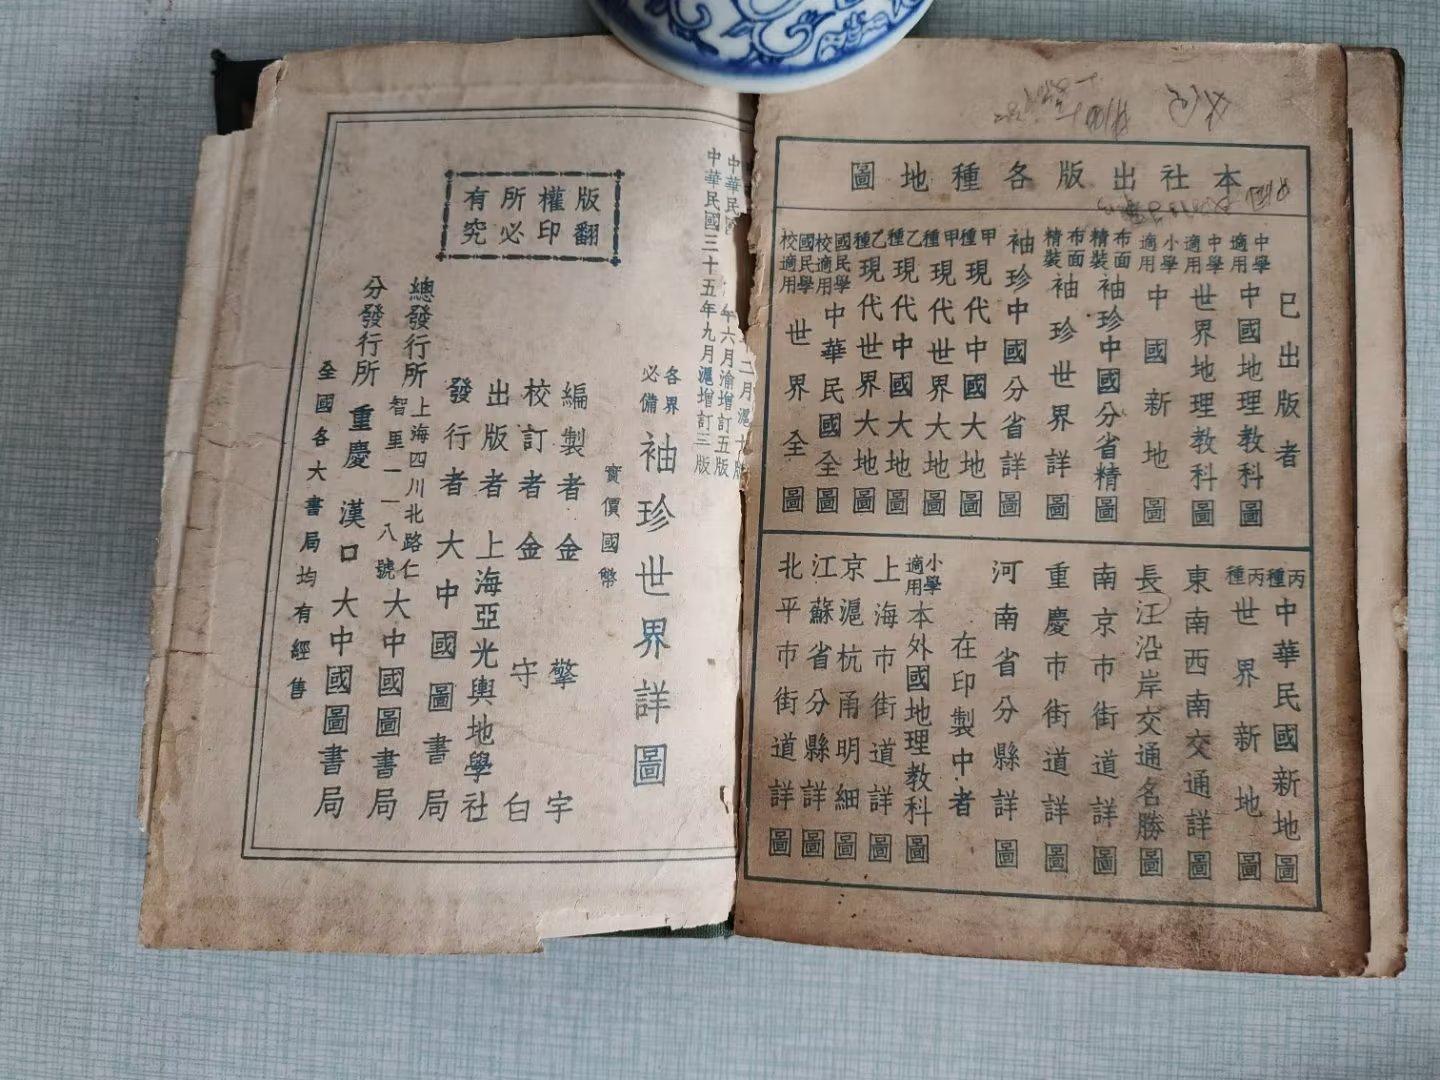 本社出版各種地圖
已出版者
中學適用 中國地理教科圖
中學適用 世界地理教科圖
小學適用 中國新地圖
布面精裝 袖珍中國分省精圖
布面精裝 袖珍世界詳圖
袖珍中國分省詳圖
甲種 現代中國大地圖
甲種 現代世界大地圖
乙種 現代中國大地圖
乙種 現代世界大地圖
國民學校適用 中華民國全圖
國民學校適用 世界全圖
丙種 中華民國新地圖
丙種 世界新地圖
東南西南交通詳圖
長江沿岸交通名勝圖
南京市街道詳圖
重慶市街道詳圖
河南省分縣詳圖
在印製中者
小學適用 本外國地理教科圖
上海市街道詳圖
京滬杭甬明細圖
江蘇省分縣詳圖
北平市街道詳圖
中華民國
年六月渝增訂五版
中華民國三十五年九月滬增訂三版
各界必備 袖珍世界詳圖
實價國幣
編製者 金擎宇
校訂者 金守白
出版者 上海亞光輿地學社
發行者 大中國圖書局
總發行所 上海四川北路仁智里一一八號 大中國圖書局
分發行所 重慶 漢口 大中國圖書局
全國各大書局均有經售
版權所有
翻印必究